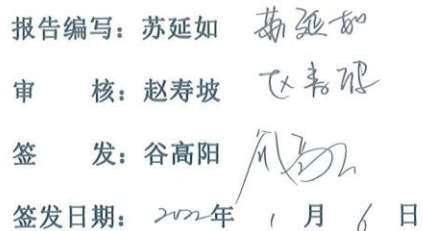 报告编写：苏延如 苏延如
审 核：赵寿坡 赵寿坡
签 发：谷高阳 谷高阳
签发日期： 2022年 1 月 6 日